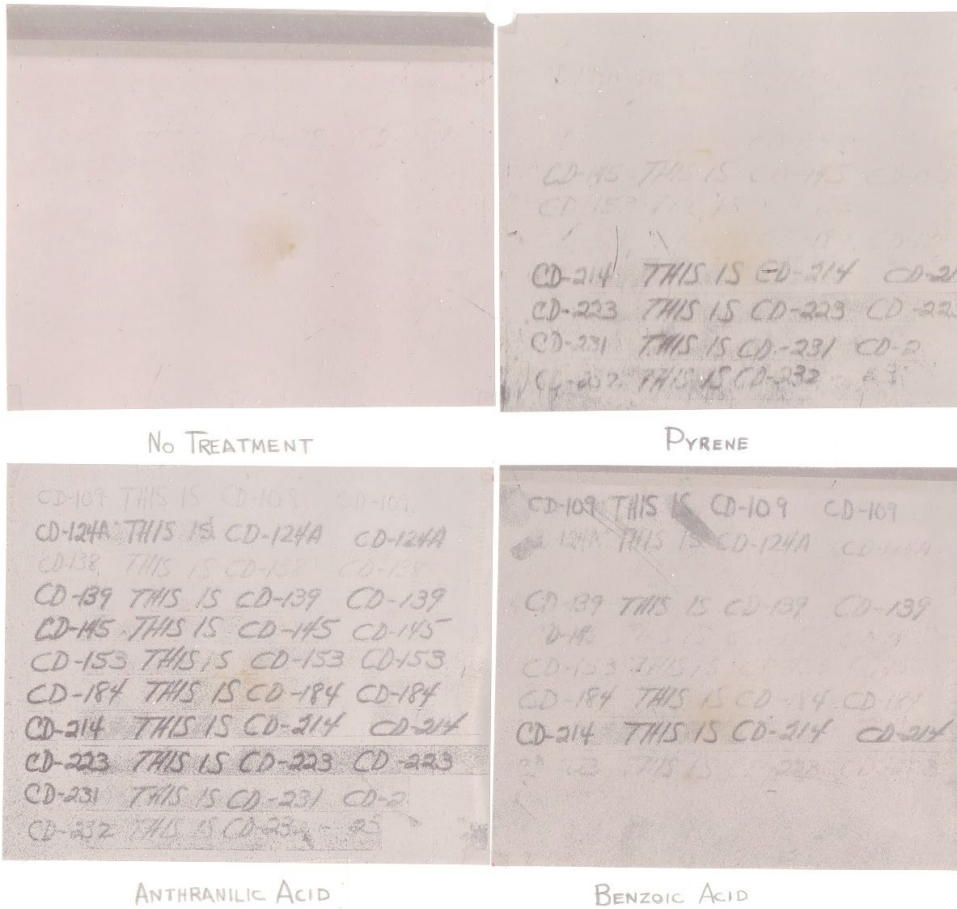 CD-145 THIS IS CD-145
CD-153 THIS IS
CD-214 THIS IS CD-214 CD-21
CD-223 THIS IS CD-223 CD-223
CD-231 THIS IS CD-231 CD-2
CD-232 THIS IS CD-232 23
NO TREATMENT
PYRENE
CD-109 THIS IS CD-109 CD-109
CD-124A THIS IS CD-124A CD-124A
CD-138 THIS IS CD-138 CD-138
CD-139 THIS IS CD-139 CD-139
CD-145 THIS IS CD-145 CD-145
CD-153 THIS IS CD-153 CD-153
CD-184 THIS IS CD-184 CD-184
CD-214 THIS IS CD-214 CD-214
CD-223 THIS IS CD-223 CD-223
CD-231 THIS IS CD-231 CD-2
CD-232 THIS IS CD-23 - 23
ANTHRANILIC ACID
CD-109 THIS IS CD-109 CD-109
124A THIS IS CD-124A CD-124A
CD-139 THIS IS CD-139 CD-139
D-145
CD-153 THIS IS
CD-184 THIS IS CD-184 CD-184
CD-214 THIS IS CD-214 CD-214
223 THIS IS 223 CD-223
BENZOIC ACID